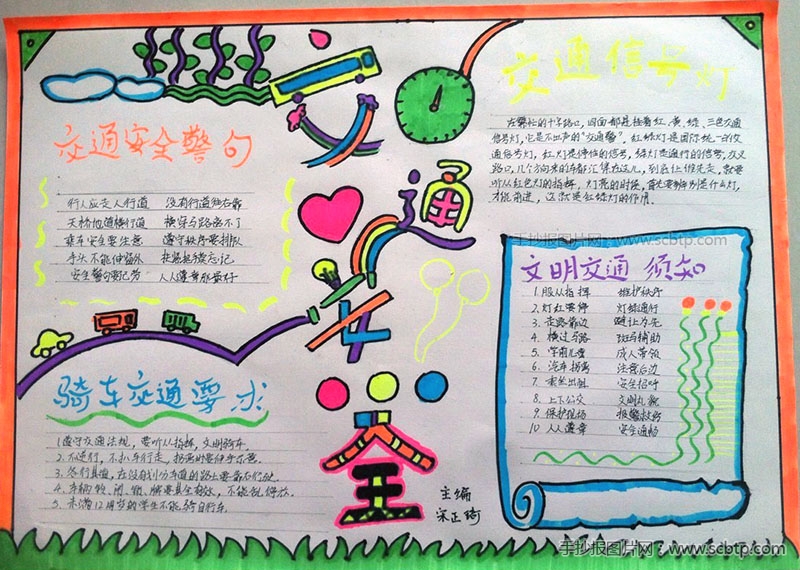 交通安全
交通安全警句
行人应走人行道 没有行道往右靠
天桥地道横行道 横穿马路离不了
乘车安全要注意 遵守秩序要排队
手头不能伸窗外
安全警句要记劳 人人遵章形最好
骑车交通要求
1.遵守交通法规,要听从指挥,文明骑车。
2.不逆行,不扒车行走,拐弯时要伸手示意。
3.各行其道,在没有划分车道的路上要靠右行驶。
4.车辆铃、闸、锁、牌要具全有效,不能乱停放。
5.未满12周岁的学生不能骑自行车。
交通信号灯
在繁忙的十字路口,四面都悬挂着红、黄、绿、三色交通
信号灯,它是不出声的“交通警”。红绿灯是国际统一的交
通信号灯,红灯是停住的信号,绿灯是通行的信号,交叉
路口,几个方向来的车都汇集在这儿,到底让谁先走,就要
听从红色灯的指挥。灯亮的时候,首先要辨别是什么灯,
才能前进,这就是红绿灯的作用。
手抄报图片网:www.scbtp.com
文明交通须知
1.服从指挥 维护秩序
2.灯红要停 灯绿通行
3.走路靠边 礼让为先
4.横过马路 斑马辅助
5.学前儿童 成人带领
6.汽车拐弯 注意后边
7.乘坐出租 安全招呼
8.上下公交 文明礼貌
9.保护现场 报警救伤
10.人人遵章 安全通畅
主编
宋正琦
手抄报图片网:www.scbtp.com